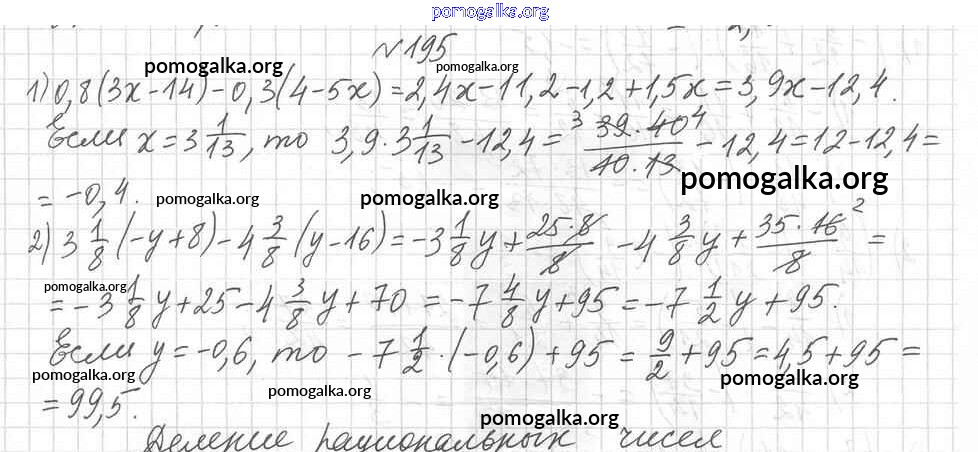 pomogalka.org
№195
1) 0,8(3x-14)-0,3(4-5x)=2,4x-11,2-1,2+1,5x=3,9x-12,4.
Если x=3 1/13, то 3,9·3 1/13-12,4= 3 39·40 4/10·13 -12,4=12-12,4=
=-0,4.
2) 3 1/8(-y+8)-4 3/8(y-16)=-3 1/8y+25·8/8-4 3/8y+35·16 2/8=
=-3 1/8y+25-4 3/8y+70=-7 4/8y+95=-7 1/2y+95.
Если y=-0,6, то -7 1/2·(-0,6)+95=9/2+95=4,5+95=
=99,5.
Деление рациональных чисел
pomogalka.org
pomogalka.org
pomogalka.org
pomogalka.org
pomogalka.org
pomogalka.org
pomogalka.org
pomogalka.org
pomogalka.org
pomogalka.org